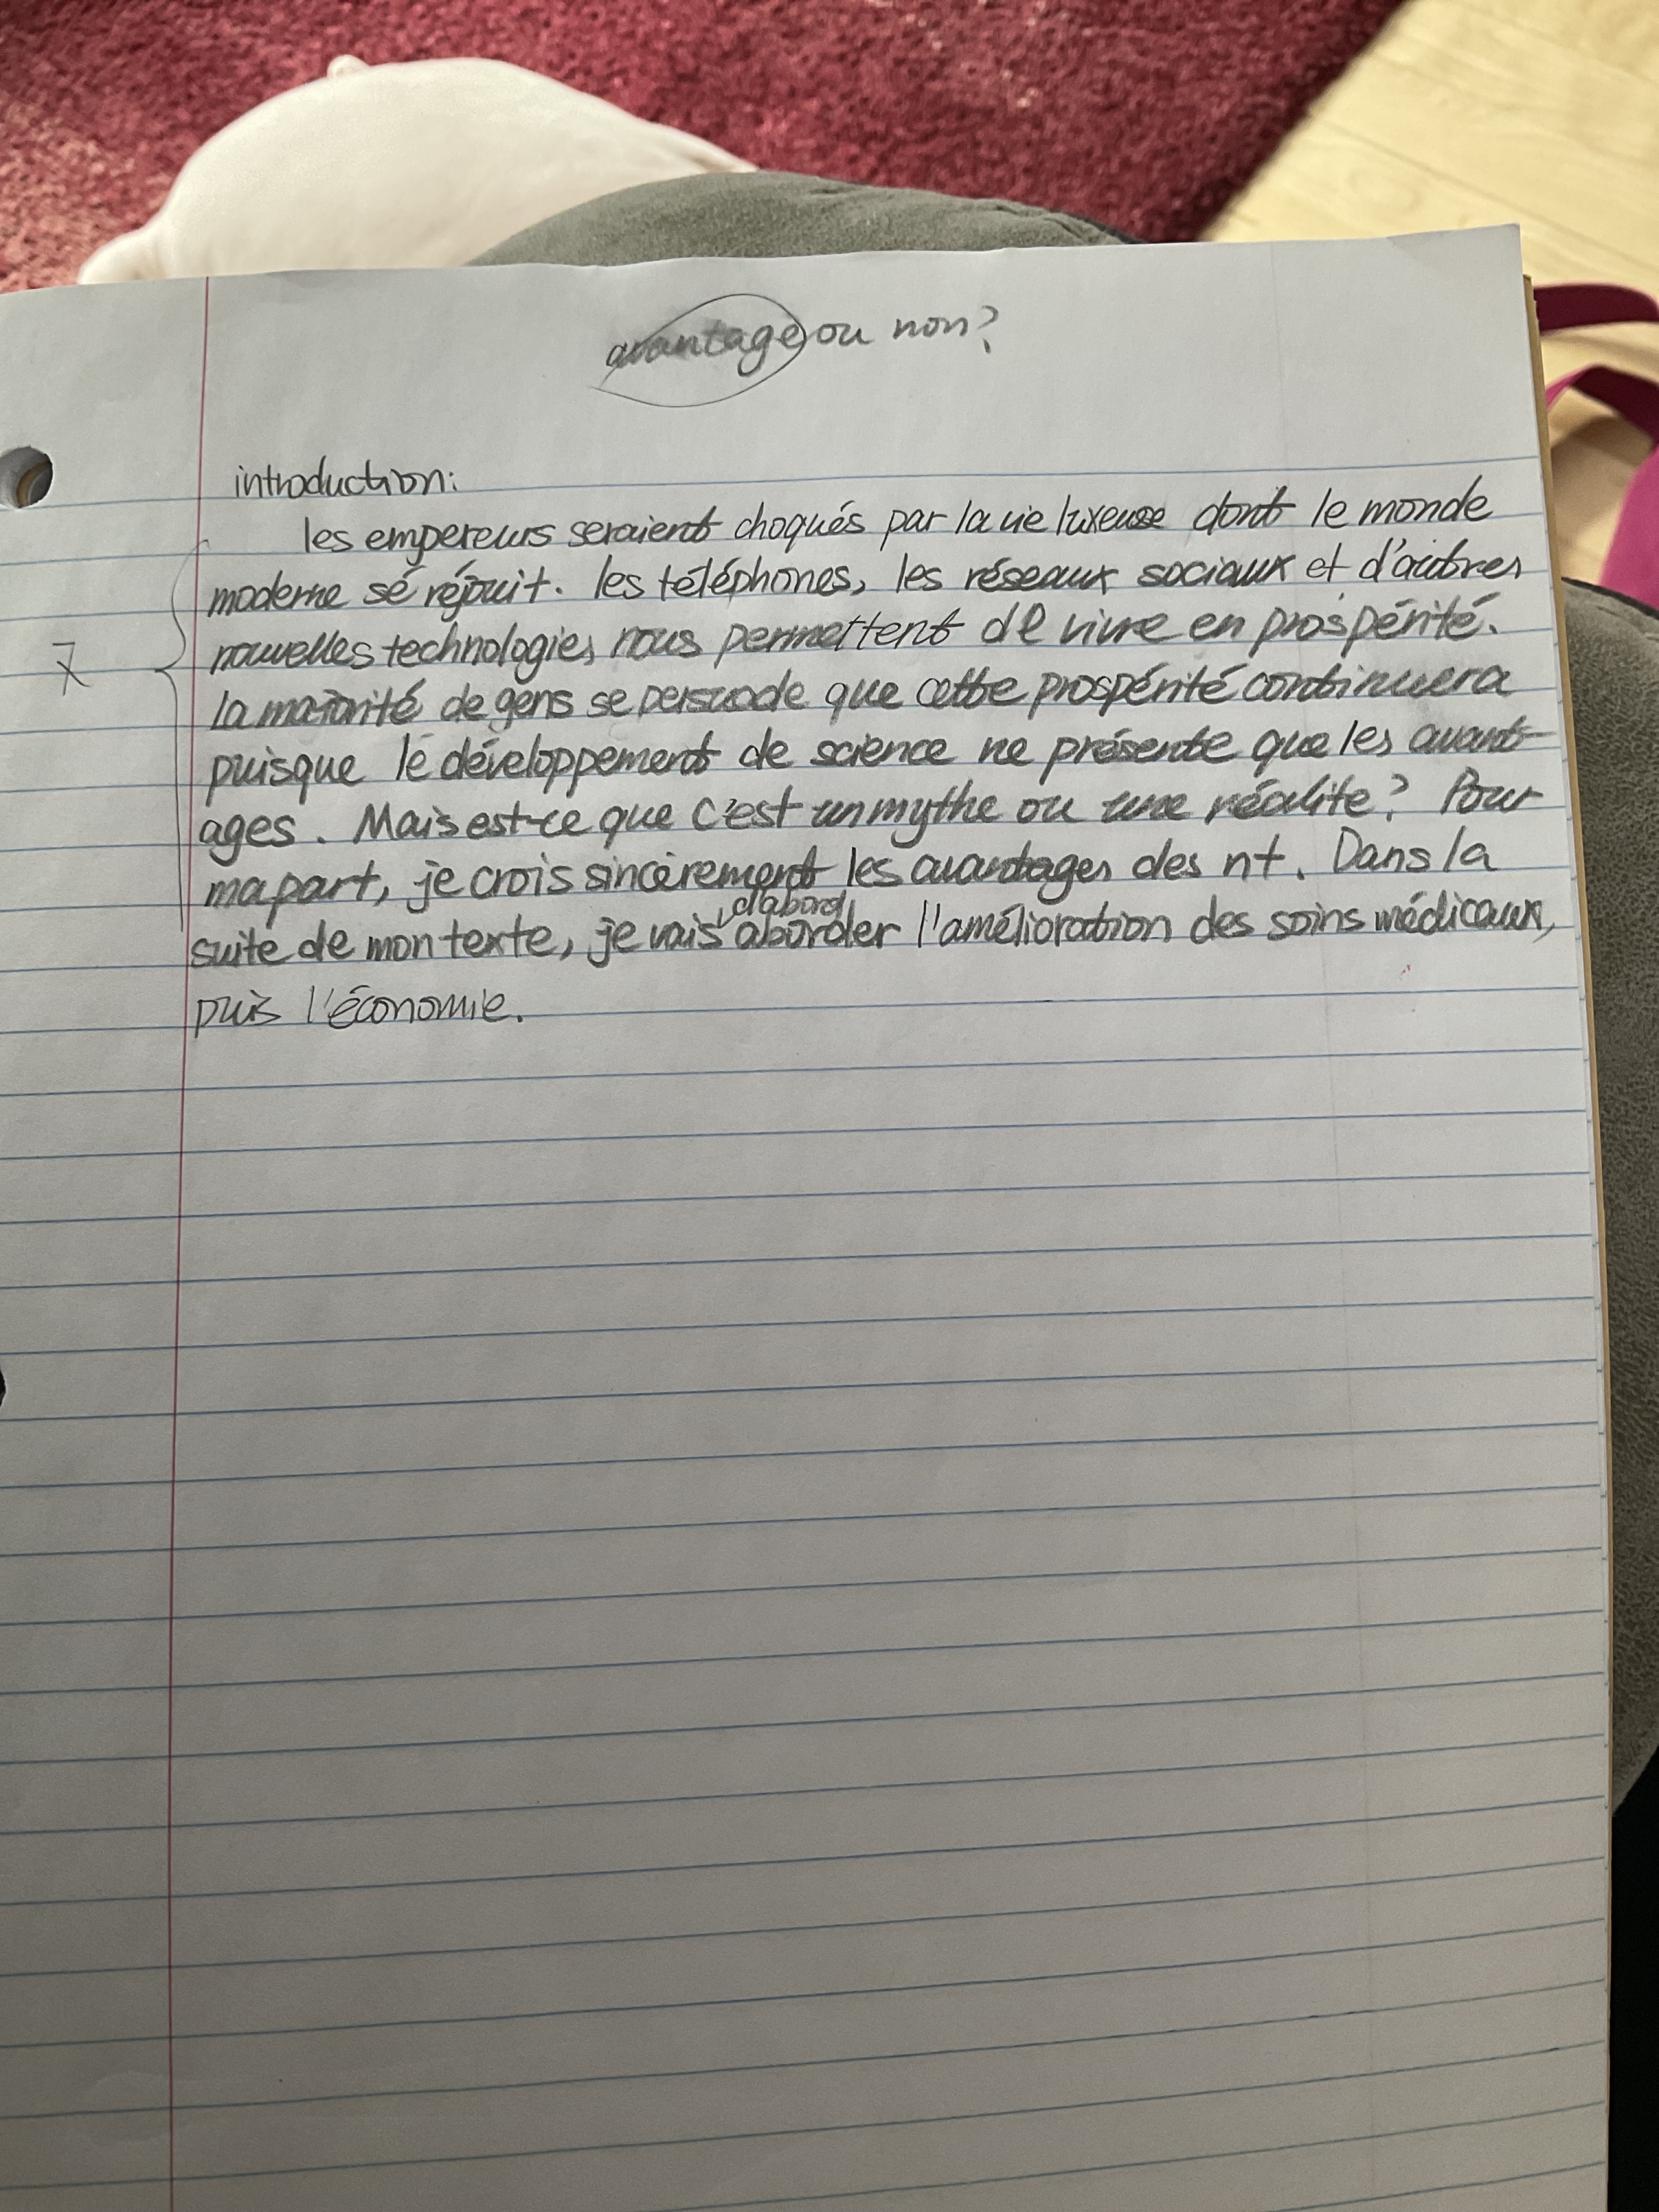 avantage ou non?
introduction:
les empereurs seraient choqués par la vie luxeuse dont le monde
moderne sé réjouit. les téléphones, les réseaux sociaux et d'autres
nouvelles technologies nous permettent de vivre en prospérité.
la majorité de gens se persuade que cette prospérité continuera
puisque le développement de science ne présente que les avant-
ages. Mais est-ce que c'est un mythe ou une réalite? Pour
7
ma part, je crois sincèrement les avantages des nt. Dans la
d'abord
suite de mon texte, je vais aborder l'amélioration des soins médicaux,
puis l'économie.